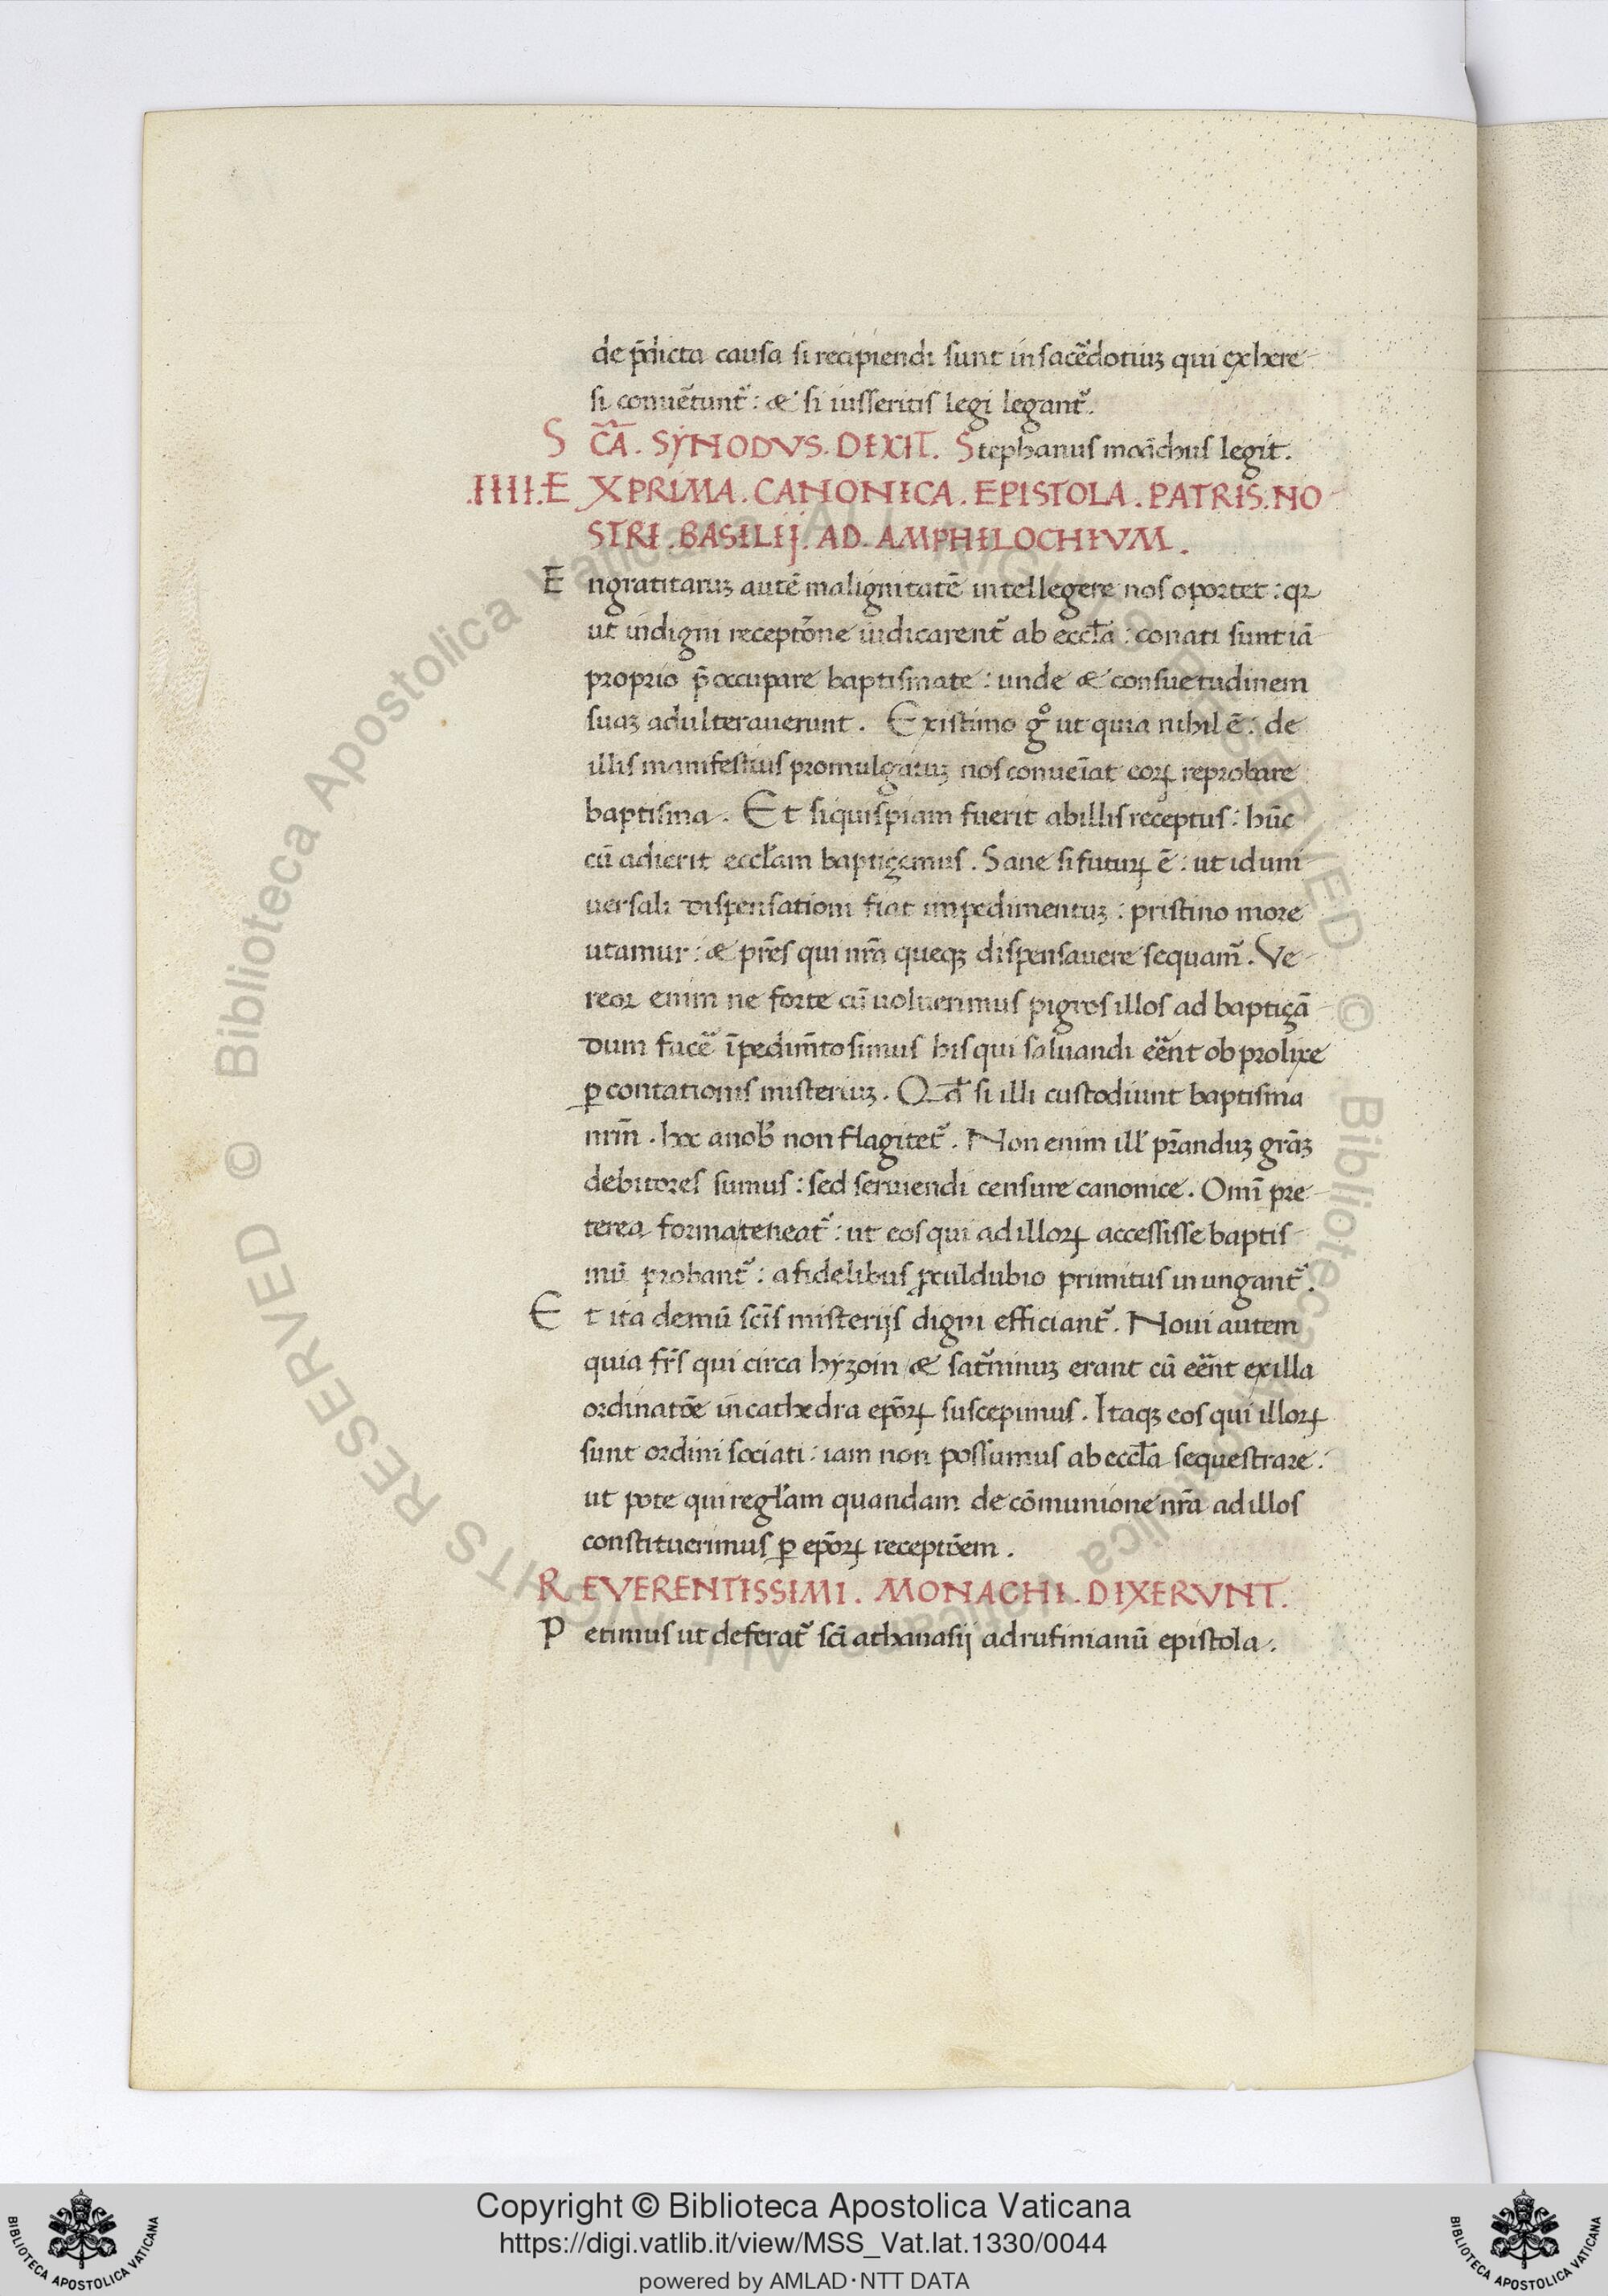 de p̄dicta causa si recipiendi sunt in sac̄edotiuꝫ qui ex here-
si conuēt̄unt᷑ : & si iusseritis legi legant᷑.
S C̄A . SYNODVS . DIXIT. Stephanus moāchus legit.
.IIII. E X PRIMA . CANONICA . EPISTOLA . PATRIS. NO-
STRI . BASILIJ . AD . AMPHILOCHIVM .
E ngratitaruꝫ autē malignitatē intellegere nos oportet : qꝛ
ut indigni receptōne iudicarent᷑ ab eccl̄a : conati sunt iā
proprio p̄occupare baptismate : unde & consuetudinem
suaꝫ adulterauerunt . Existimo gͦ ut quia nihil ē : de
illis manifestius promulgatuꝫ nos conueīat eoꝝ reprobare
baptisma . Et siquispiam fuerit ab illis receptus : hūc
cū adierit eccl̄am baptiçemus . Sane si futuꝝ ē : ut id uni-
uersali dispensationi fiat impedimentuꝫ : pristino more
utamur : & pr̄es qui nr̄a queqꝫ dispensauere sequam᷑ . Ve-
reor enim ne forte cū uoluerimus pigros illos ad baptiçā
dum facē īpedim̄to simus his qui saluandi eēnt ob prolixe
ꝑcontationis misteriuꝫ . Qd̄ si illi custodiunt baptisma
nr̄m . hoc a nob̄ non flagitet᷑ . Non enim ill̄ pr̄anduꝫ grāꝫ
debitores sumus : sed seruiendi censure canonice . Omī pre-
terea forma teneat᷑ : ut eos qui ad illoꝝ accessisse baptis-
mū probant᷑ : a fidelibus ꝓculdubio primitus inungant᷑ .
E t ita demū sc̄is misterijs digni efficiant᷑ . Noui autem
quia fr̄s qui circa hyzoin & sat᷑ninuꝫ erant cū eēnt ex illa
ordinatōe in cathedra epōꝝ suscepimus . Itaqꝫ eos qui illoꝝ
sunt ordini sociati : iam non possumus ab eccl̄a sequestrare :
ut pote qui regl̄am quandam de cōmunione nr̄a ad illos
constituerimus ꝑ epōꝝ receptōem .
R EVERENTISSIMI . MONACHI . DIXERVNT.
P etimus ut deferat᷑ sc̄i athanasij ad rufinianū epistola .
Copyright © Biblioteca Apostolica Vaticana
https://digi.vatlib.it/view/MSS_Vat.lat.1330/0044
powered by AMLAD·NTT DATA
BIBLIOTECA APOSTOLICA VATICANA
BIBLIOTECA APOSTOLICA VATICANA
© Biblioteca Apostolica Vaticana ALL RIGHTS RESERVED © Biblioteca Apostolica Vaticana ALL RIGHTS RESERVED